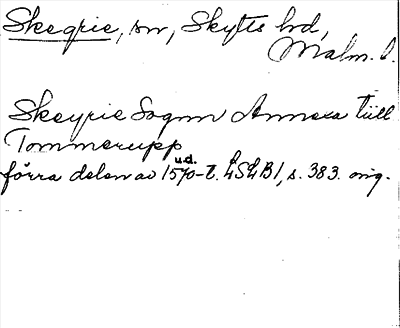 Skegrie, sn, Skytts hd,
Malm. l.
Skeyrie Sognn Annexa tiill
Tommerupp
förra delen av 1570-t. LSLB1, s. 383. orig.
u.d.